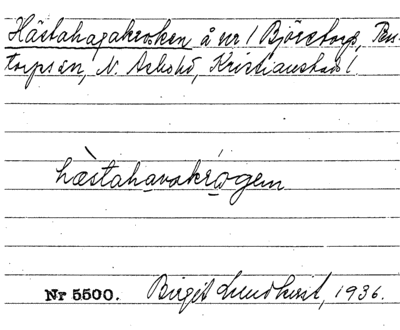 Hästahagakroken å nr 1 Björstorp, Ben-
torps sn, N. Asbo hd, Kristianstads l.
hæ̀stahavakrógen
Nr 5500. Birgit Lundkvist, 1936.